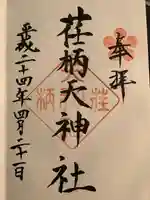 奉拝
荏柄天神社
平成二十四年四月二十一日
荏
柄